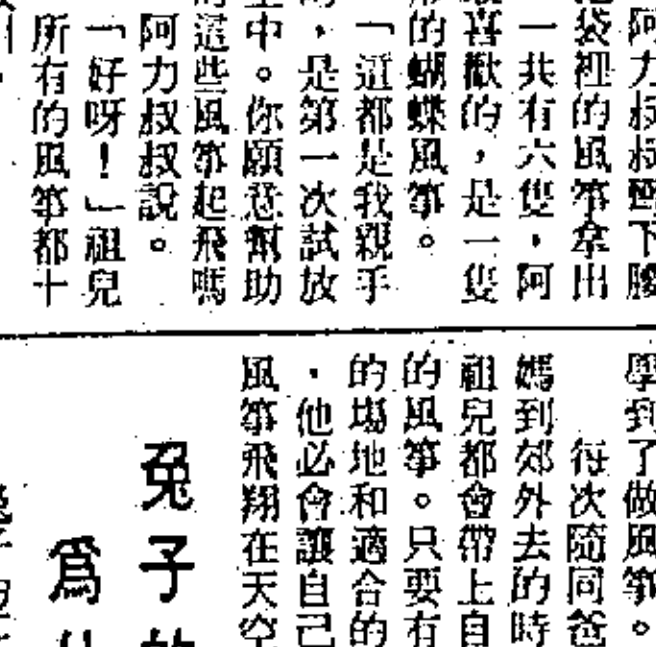 阿力叔叔
袋裡的風箏拿出
一共有六隻，阿
喜歡的，是一隻
的蝴蝶風箏。
「這都是我親手
，是第一次試放
中。你願意幫助
這些風箏起飛嗎
阿力叔叔說。
「好呀！」祖兒
所有的風箏都十
學到了做風箏。
每次隨同爸
媽到郊外去的時
祖兒都會帶上自
的風箏。只要有
的場地和適合的
，他必會讓自己
風箏飛翔在天空
兔子的
爲什